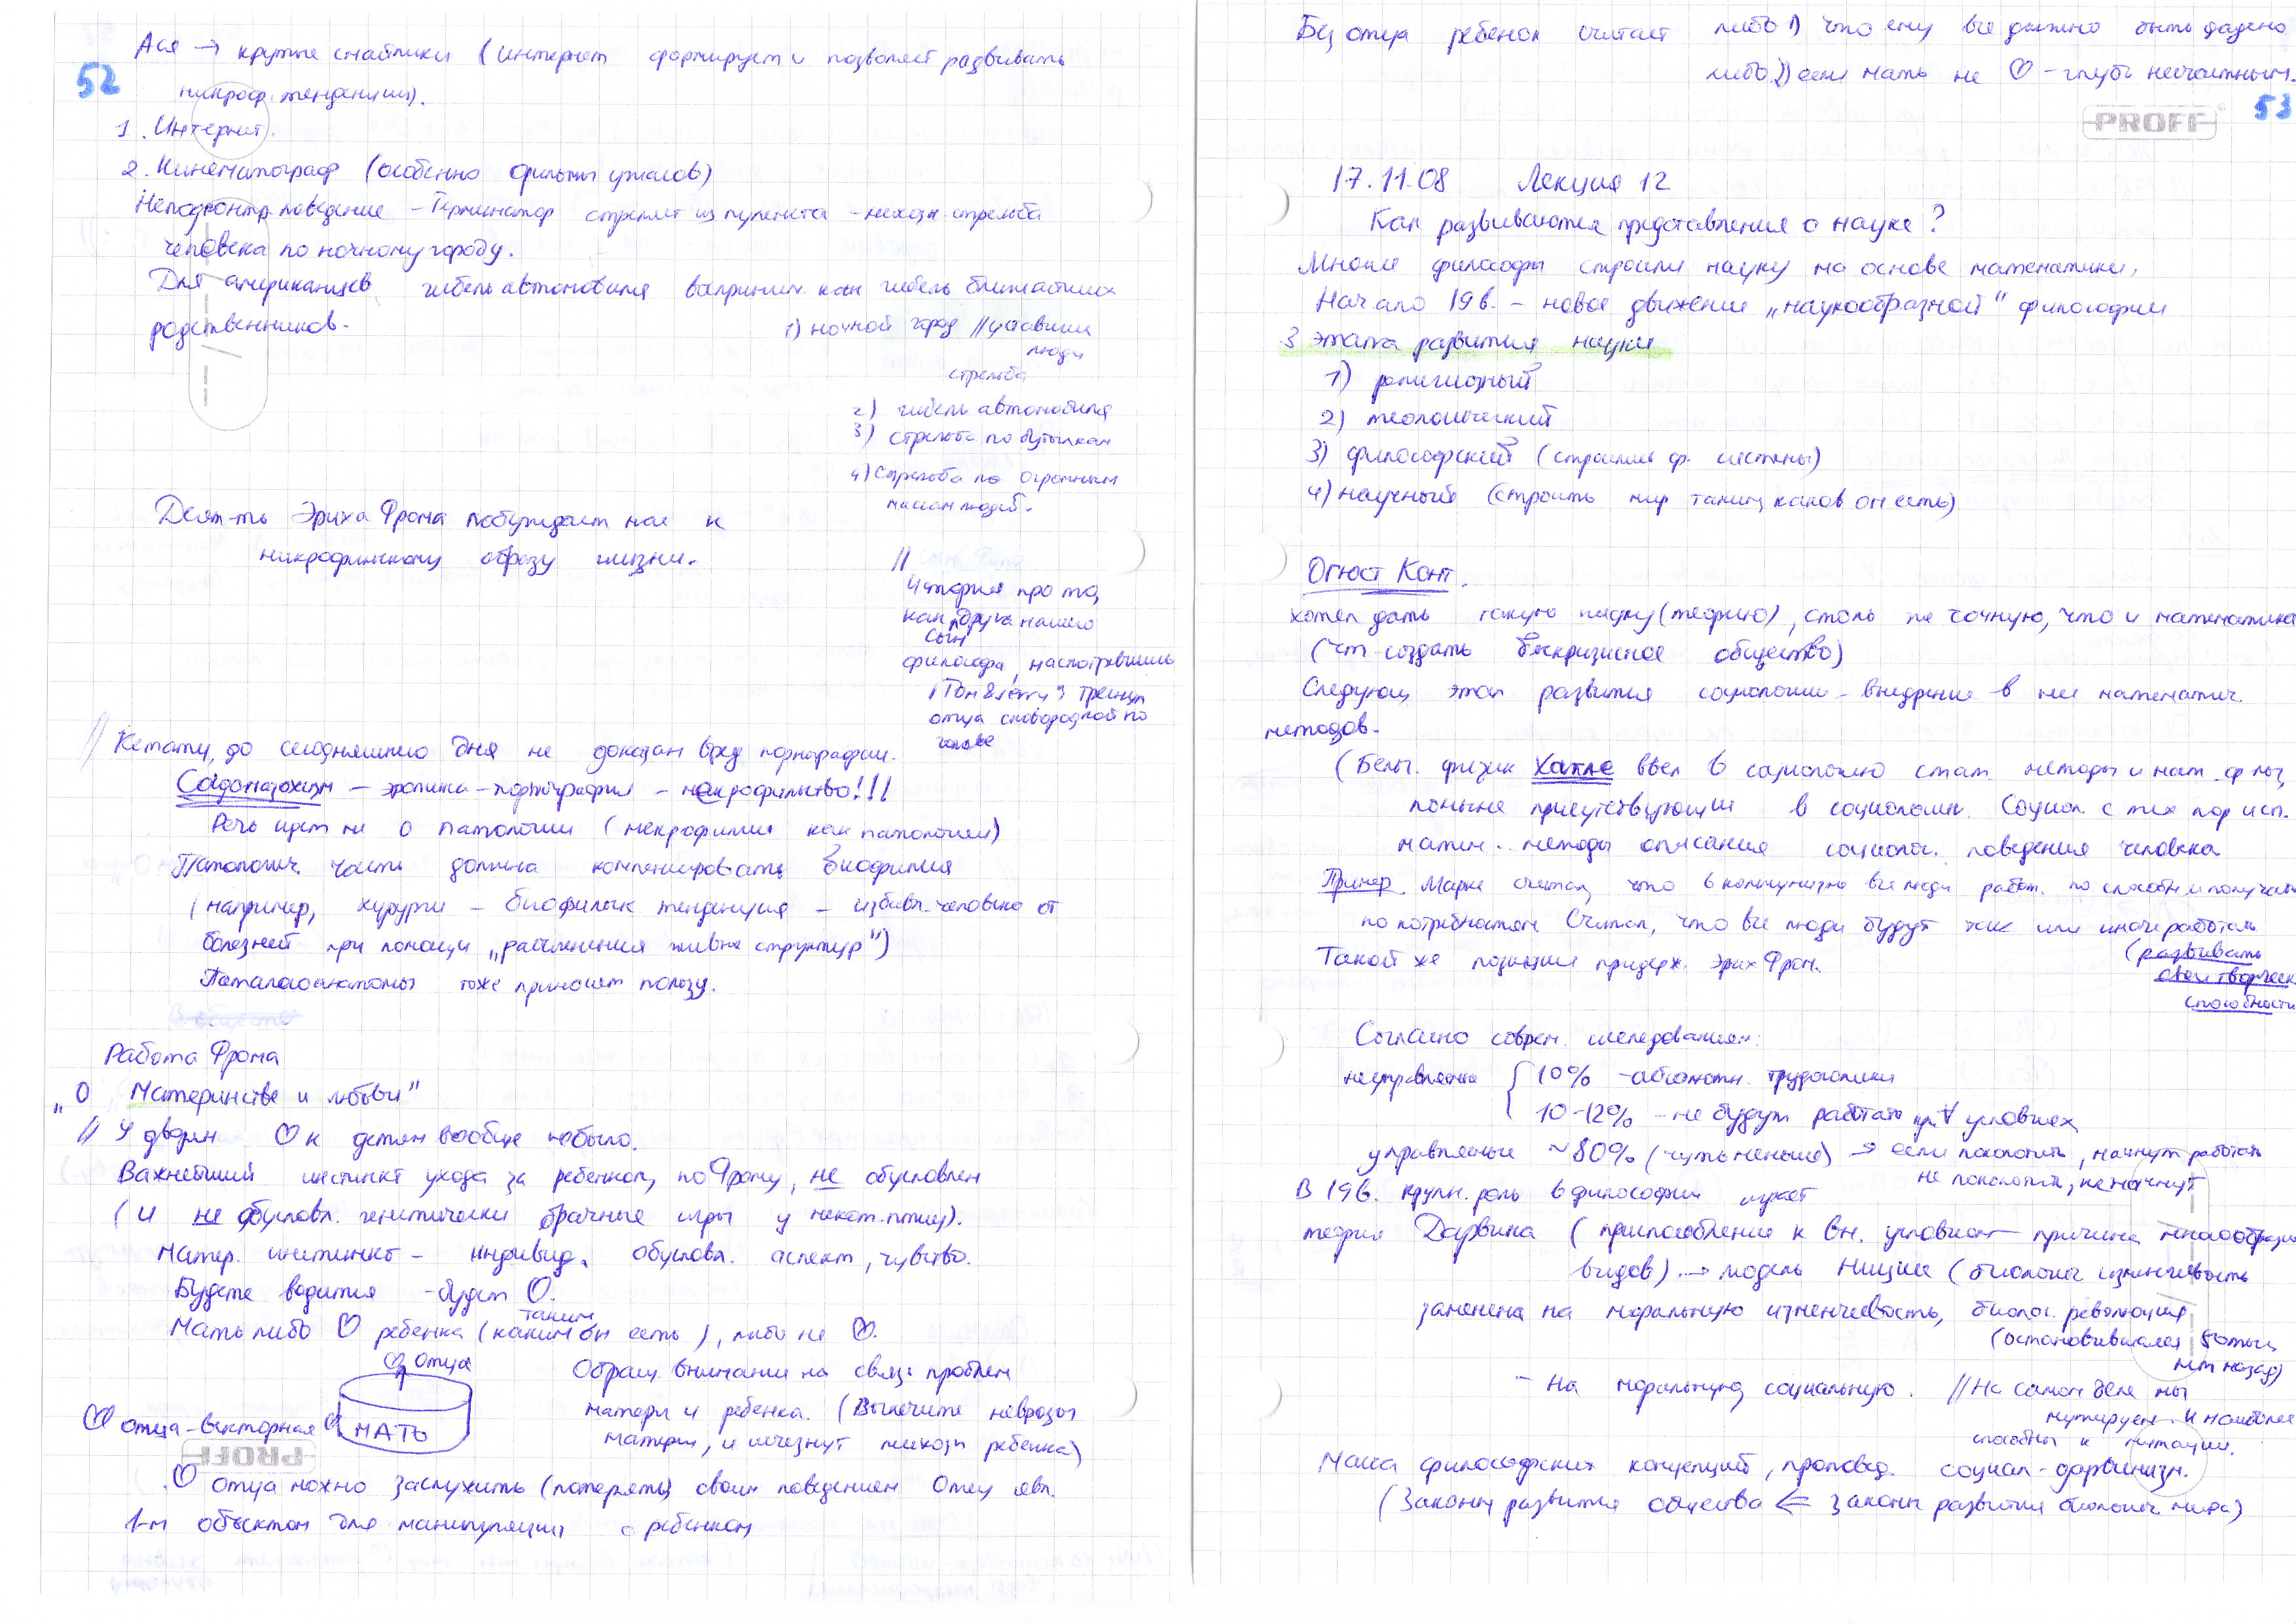 52
Ася → крутые смайлики (интернет формирует и позволяет развивать
некроф. тенденции).
1. Интернет.
2. Кинематограф (особенно фильмы ужасов)
Неподконтр. поведение – Терминатор стреляет из пулемета – стрельба
человека по ночному городу.
Для американцев гибель автомобиля восприним. как гибель ближайших
родственников.
1) ночной город // уставшие
люди
стрельба
2) гибель автомобиля
3) стрельба по бутылкам
4) Стрельба по огромным
массам людей.
Деят-ть Эриха Фрома побуждает нас к
некрофильному образу жизни.
//
История про то,
как друга нашего
сын
философа, насмотревшись
"Том & Jerry", треснул
отца сковородкой по
голове
// Кстати, до сегодняшнего дня не доказан вред порнографии.
Садомазохизм – эротика – порнография – некрофильство!!!
Речь идет не о патологии (некрофилия как патология)
Патологич. часть должна компенсировать биофилия
(например, хирурги – биофильная тенденция – избавл. человека от
болезней при помощи „расчленения живых структур")
Паталогоанатомы тоже приносят пользу.
Работа Фрома
„О Материнстве и любви"
// У дворян ♡ к детям вообще не было.
Важнейший инстинкт ухода за ребенком, по Фрому, не обусловлен
(и не обусловл. генетически брачные игры у некот. птиц).
Матер. инстинкт – индивид. обусловл. аспект, чувство.
Будете водиться – будет ♡.
таким
Мать либо ♡ ребенка (каким он есть), либо не ♡.
♡ отца
МАТЬ
♡ отца – векторная
Обращ. внимание на связь проблем
матери и ребенка. (Вылечите неврозы
матери, и исчезнут психозы ребенка)
♡ отца можно заслужить (потерять) своим поведением Отец явл.
1-м объектом для манипуляции ребенком
Без отца ребенок считает либо 1) что ему все должно быть дадено
либо 2) если мать не ♡ – глуб. несчастным.
53
PROFF
17.11.08 Лекция 12
Как развиваются представления о науке?
Многие философы строили науку на основе математики.
Начало 19в. – новое движение „наукообразной" философии
3 этапа развития науки
1) религиозный
2) теологический
3) философский (строились ф. системы)
4) научный (строить мир таким, каков он есть)
Огюст Конт.
хотел дать такую науку (теорию), столь же точную, что и математика
(чт. создать бескризисное общество)
Следующ. этап развития социологии – внедрение в нее математич.
методов.
(Бельг. физик ввел в социологию стат. методы и мат. ф-лы,
поныне присутствующие в социологии. Социол. с тех пор исп.
матем. методы описания социолог. поведения человека
Пример. Маркс считал, что в коммунизме все люди работ. по способн. и получают
по потребностям Считал, что все люди будут так или иначе работать
(развивать
свои творческ.
способности
Такой же позиции придерж. Эрих Фром.
Согласно соврем. исследованиям:
неуправляемые { 10% – абсолютн. трудоголики
10-12% – не будут работать при ∀ условиях
управляемые ~80% (чуть меньше) → если поколотить, начнут работать
не поколотить, не начнут
В 19в. крупн. роль в философии играет
теория Дарвина (приспособление к вн. условиям – причина многообразия
видов). → модель Ницше (биологич изменчивость
заменена на моральную изменчивость, биолог. революция
(остановившаяся 50 тыс.
лет назад)
– на моральную, социальную. // На самом деле мы
мутируем. И наиболее
способны к мутации.
Масса философских концепций, проповед. социал-дарвинизм.
(Законы развития общества ⇐ законы развития биологич. мира)
PROFF